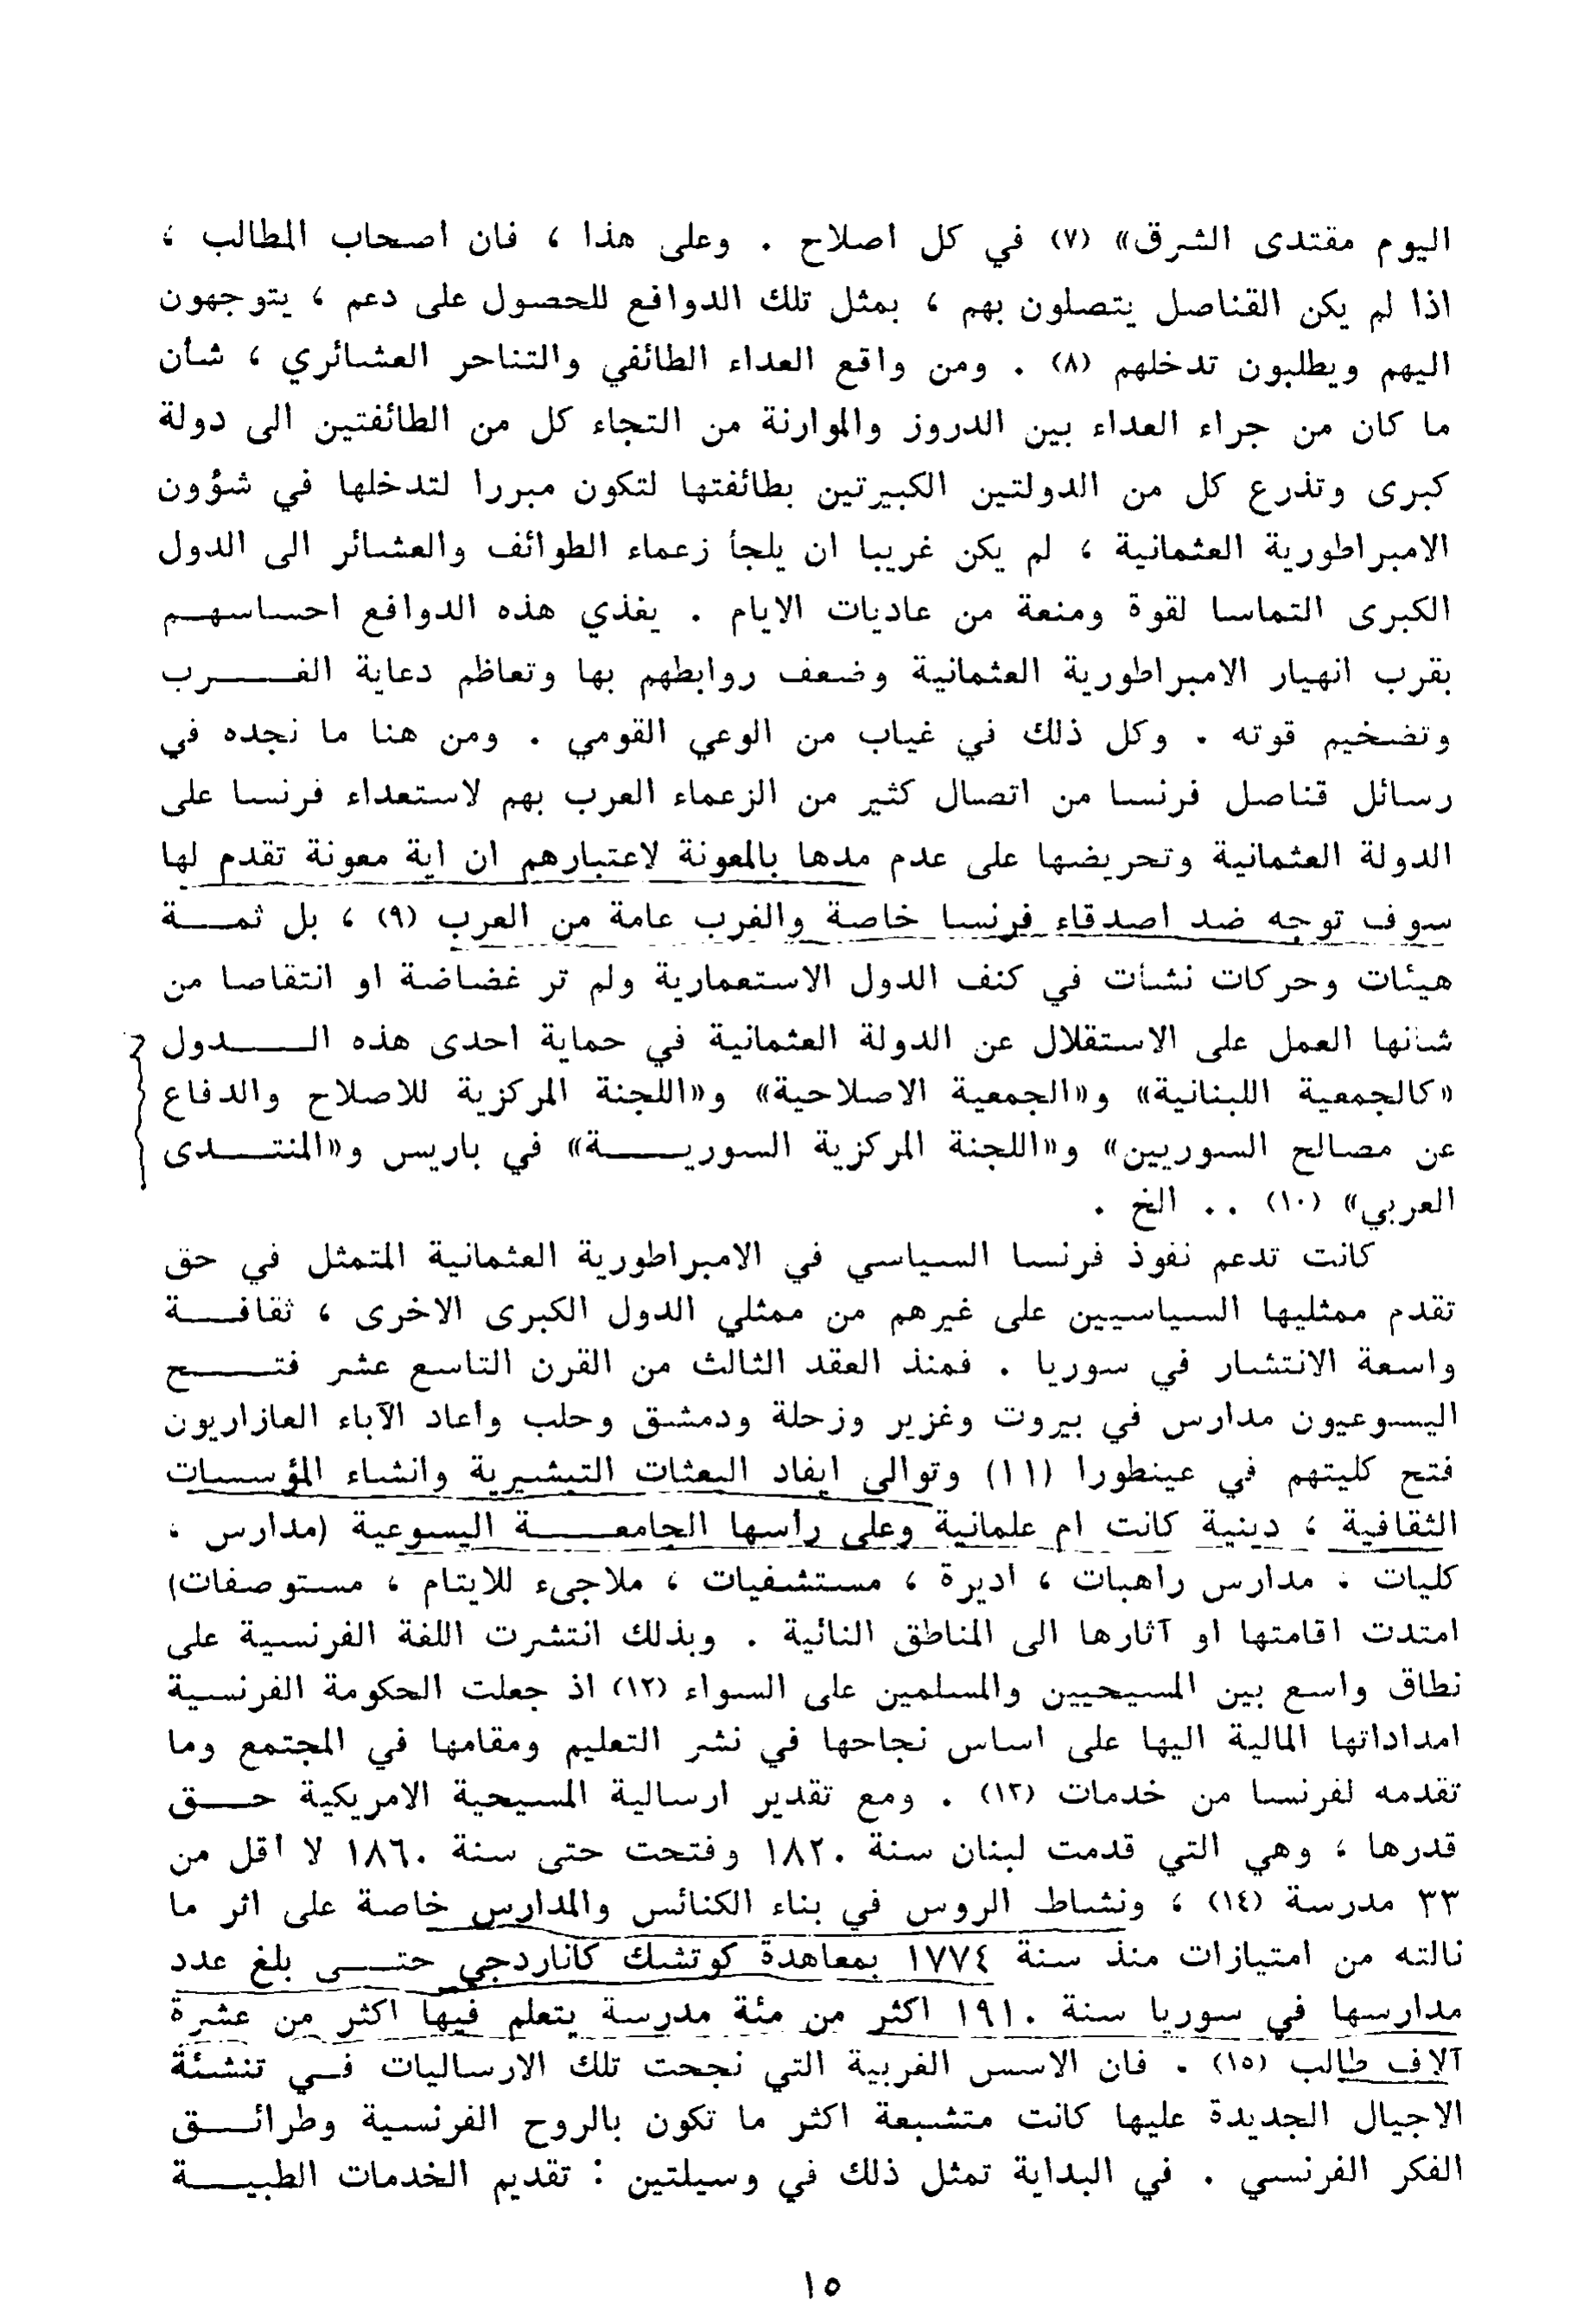 اليوم مقتدى الشرق» (٧) في كل اصلاح . وعلى هذا ، فان اصحاب المطالب ،
اذا لم يكن القناصل يتصلون بهم ، بمثل تلك الدوافع للحصول على دعم ، يتوجهون
اليهم ويطلبون تدخلهم (٨) . ومن واقع العداء الطائفي والتناحر العشائري ، شأن
ما كان من جراء العداء بين الدروز والموارنة من التجاء كل من الطائفتين الى دولة
كبرى وتذرع كل من الدولتين الكبيرتين بطائفتها لتكون مبررا لتدخلها في شؤون
الامبراطورية العثمانية ، لم يكن غريبا ان يلجأ زعماء الطوائف والعشائر الى الدول
الكبرى التماسا لقوة ومنعة من عاديات الايام . يغذي هذه الدوافع احساسهم
بقرب انهيار الامبراطورية العثمانية وضعف روابطهم بها وتعاظم دعاية الغرب
وتضخيم قوته . وكل ذلك في غياب من الوعي القومي . ومن هنا ما نجده في
رسائل قناصل فرنسا من اتصال كثير من الزعماء العرب بهم لاستعداء فرنسا على
الدولة العثمانية وتحريضها على عدم مدها بالمعونة لاعتبارهم ان اية معونة تقدم لها
سوف توجه ضد اصدقاء فرنسا خاصة والغرب عامة من العرب (٩) ، بل ثمة
هيئات وحركات نشأت في كنف الدول الاستعمارية ولم تر غضاضة او انتقاصا من
شأنها العمل على الاستقلال عن الدولة العثمانية في حماية احدى هذه الدول
«كالجمعية اللبنانية» و«الجمعية الاصلاحية» و«اللجنة المركزية للاصلاح والدفاع
عن مصالح السوريين» و«اللجنة المركزية السورية» في باريس و«المنتدى
العربي» (١٠) .. الخ .
كانت تدعم نفوذ فرنسا السياسي في الامبراطورية العثمانية المتمثل في حق
تقدم ممثليها السياسيين على غيرهم من ممثلي الدول الكبرى الاخرى ، ثقافة
واسعة الانتشار في سوريا . فمنذ العقد الثالث من القرن التاسع عشر فتح
اليسوعيون مدارس في بيروت وغزير وزحلة ودمشق وحلب وأعاد الآباء العازاريون
فتح كليتهم في عينطورا (١١) وتوالى ايفاد البعثات التبشيرية وانشاء المؤسسات
الثقافية ، دينية كانت ام علمانية وعلى رأسها الجامعة اليسوعية (مدارس ،
كليات ، مدارس راهبات ، اديرة ، مستشفيات ، ملاجىء للايتام ، مستوصفات)
امتدت اقامتها او آثارها الى المناطق النائية . وبذلك انتشرت اللغة الفرنسية على
نطاق واسع بين المسيحيين والمسلمين على السواء (١٢) اذ جعلت الحكومة الفرنسية
امداداتها المالية اليها على اساس نجاحها في نشر التعليم ومقامها في المجتمع وما
تقدمه لفرنسا من خدمات (١٣) . ومع تقدير ارسالية المسيحية الامريكية حق
قدرها ، وهي التي قدمت لبنان سنة ١٨٢٠ وفتحت حتى سنة ١٨٦٠ لا أقل من
٣٣ مدرسة (١٤) ، ونشاط الروس في بناء الكنائس والمدارس خاصة على اثر ما
نالته من امتيازات منذ سنة ١٧٧٤ بمعاهدة كوتشك كاناردجي حتى بلغ عدد
مدارسها في سوريا سنة ١٩١٠ اكثر من مئة مدرسة يتعلم فيها اكثر من عشرة
آلاف طالب (١٥) . فان الاسس الغربية التي نجحت تلك الارساليات في تنشئة
الاجيال الجديدة عليها كانت متشبعة اكثر ما تكون بالروح الفرنسية وطرائق
الفكر الفرنسي . في البداية تمثل ذلك في وسيلتين : تقديم الخدمات الطبية
١٥